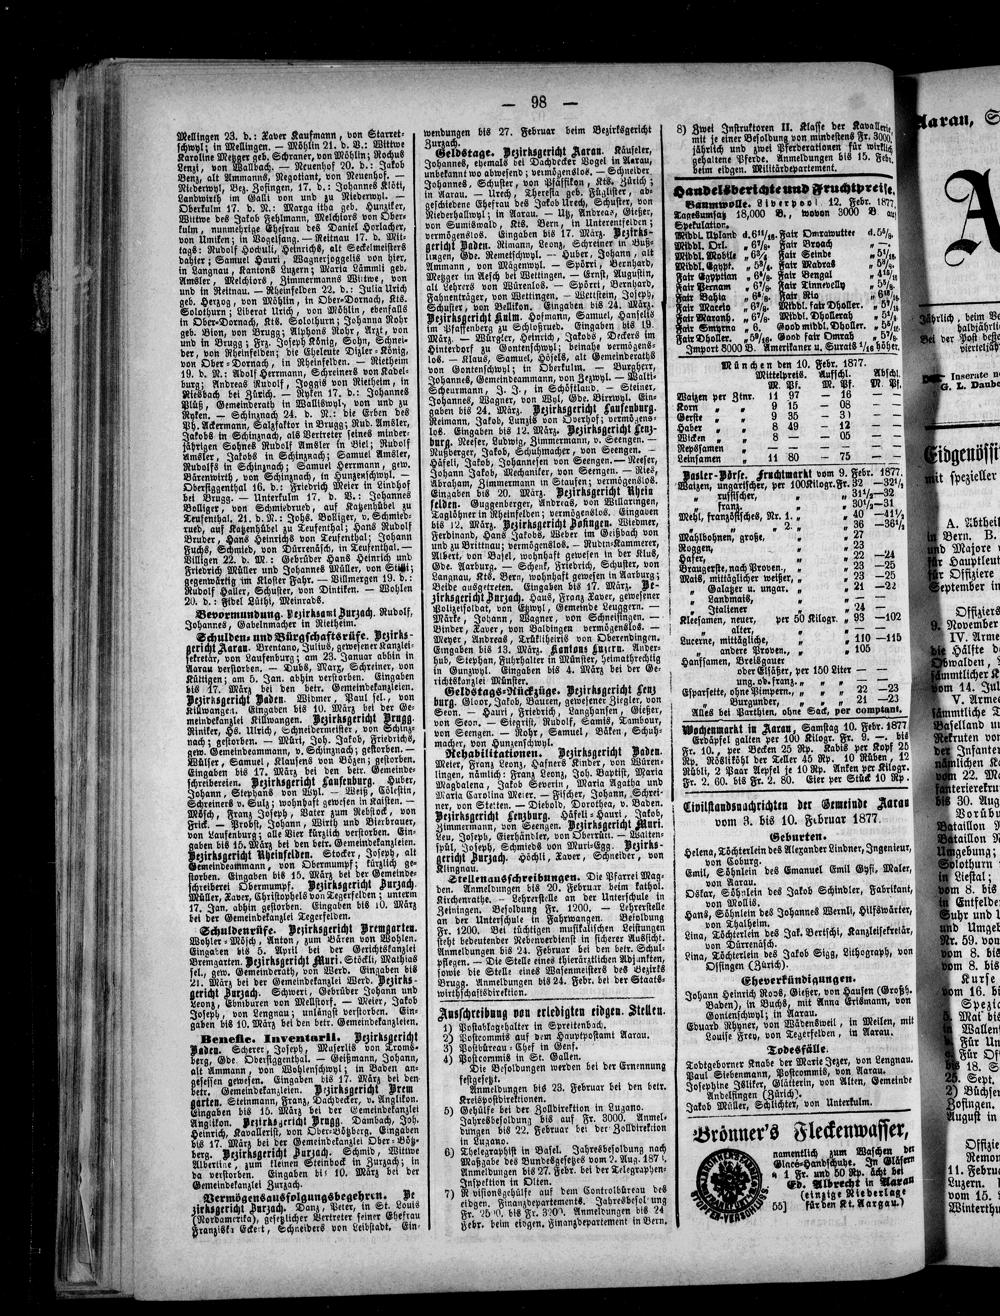 — 98 —
Mellingen 23. d.: Xaver Kaufmann, von Starret-
schwyl; in Mellingen. — Möhlin 21. d. V.: Wittwe
Karoline Metzger geb. Schraner, von Möhlin; Rochus
Lenzi, von Wallbach. — Neuenhof 20. d.: Jakob
Benz, alt Ammanns, Negotiant, von Neuenhof. —
Niederwyl, Bez. Zofingen, 17. d.: Johannes Klöti,
Landwirth im Galli von und zu Niederwyl. —
Oberkulm 17. d. N.: Margaritha geb. Hunziker,
Wittwe des Jakob Fehlmann, Melchiors von Ober-
kulm, nunmehrige Ehefrau des Daniel Horlacher,
von Umiken; in Vogelsang. — Reitnau 17. d. Mit-
tags: Rudolf Hochuli, Heinrichs, alt Seckelmeisters
dahier; Samuel Hauri, Wagnerjoggelis von hier,
in Langnau, Kantons Luzern; Maria Lämmli geb.
Amsler, Melchiors, Zimmermanns Wittwe, von
und in Reitnau. — Rheinfelden 22. d.: Julia Urich
geb. Herzog, von Möhlin, in Ober-Dornach, Kts.
Solothurn; Liberat Urich, von Möhlin, ebenfalls
in Ober-Dornach, Kts. Solothurn; Johanna Rohr
geb. Bion, von Brugg; Alphons Rohr, Arzt, von
und in Brugg; Frz. Joseph König, Sohn, Schnei-
der, von Rheinfelden; die Eheleute Dizler-König,
von Ober-Dornach, in Rheinfelden. — Rietheim
19. d. N.: Adolf Herrmann, Schreiners von Kadel-
burg; Andreas Rudolf, Joggis von Rietheim, in
Riesbach bei Zürich. — Ryken 17. d.: Johannes
Plüß, Gemeinderath in Walliswyl, von und zu
Ryken. — Schinznach 24. d. N.: die Erben des
Ph. Ackermann, Salzfaktor in Brugg; Rud. Amsler,
Jakobs in Schinznach, als Vertreter seines minder-
jährigen Sohnes Rudolf Amsler in Biel; Rudolf
Amsler, Jakobs in Schinznach; Samuel Amsler,
Rudolfs in Schinznach; Samuel Herrmann, gew.
Bärenwirth, von Schinznach, in Hunzenschwyl. —
Obersiggenthal 16. d.: Friedrich Meier in Lindhof
bei Brugg. — Unterkulm 17. d. V.: Johannes
Bolliger, von Schmiedrued, auf Katzenhübel zu
Teufenthal, 21. d. N.: Johs. Bolliger, v. Schmied-
rued, auf Katzenhübel zu Teufenthal; Hans Rudolf
Bruder, Hans Heinrichs von Teufenthal; Johann
Fuchs, Schmied, von Dürrenäsch, in Teufenthal. —
Villigen 22. d. M.: Gebrüder Hans Heinrich und
Friedrich Müller und Johannes Müller, von
gegenwärtig im Kloster Fahr. — Villmergen 19. d.:
Rudolf Haller, Schuster, von Dintiken. — Wohlen
20. d.: Fidel Lüthi, Meinrads.
Bevormundung. Bezirksamt Zurzach. Rudolf,
Johannes, Gabelnmacher in Rietheim.
Schulden- und Bürgschaftsrufe. Bezirks-
gericht Aarau. Brentano, Julius, gewesener Kanzlei-
sekretär, von Laufenburg; am 23. Januar abhin in
Aarau verstorben. — Dubs, Marx, Schreiner, von
Küttigen; am 5. Jan. abhin verstorben. Eingaben
bis 17. März bei den betr. Gemeindekanzleien.
Bezirksgericht Baden. Widmer, Paul sel., von
Killwangen. Eingaben bis 10. März bei der Ge-
meindekanzlei Killwangen. Bezirksgericht Brugg.
Riniker, Hs. Ulrich, Schneidermeister, von Schinz-
nach; gestorben. — Müri, Joh. Jakob, Friedrichs,
gew. Gemeindeammann, v. Schinznach; gestorben. —
Wülser, Samuel, Klausens von Bözen; gestorben.
Eingaben bis 17. März bei den betr. Gemeinde-
schreibereien. Bezirksgericht Laufenburg. Huber,
Johann, Stephans von Wyl. — Weiß, Cölestin,
Schreiners v. Sulz; wohnhaft gewesen in Kaisten. —
Mösch, Franz Joseph, Vater zum Rebstock, von
Frick. — Probst, Johann, Wirth und Bierbrauer,
von Laufenburg; alle Vier kürzlich verstorben. Ein-
gaben bis 15. März bei den betr. Gemeindekanzleien.
Bezirksgericht Rheinfelden. Stocker, Joseph, alt
Gemeindeammann, von Obermumpf; kürzlich ge-
storben. Eingaben bis 15. März bei der Gemeinde-
schreiberei Obermumpf. Bezirksgericht Zurzach.
Müller, Xaver, Christophels von Tegerfelden; unterm
17. Jan. abhin gestorben. Eingaben bis 10. März
bei der Gemeindekanzlei Tegerfelden.
Schuldenrufe. Bezirksgericht Bremgarten.
Wohler-Mösch, Anton, zum Bären von Wohlen.
Eingaben bis 5. April bei der Gerichtskanzlei
Bremgarten. Bezirksgericht Muri. Stöckli, Mathias
sel., gew. Gemeinderath, von Werd. Eingaben bis
21. März bei der Gemeindekanzlei Werd. Bezirks-
gericht Zurzach. Schweri, Gebrüder Johann und
Leonz, Ebniburen von Mellstorf. — Meier, Jakob
Joseph, von Lengnau; unlängst verstorben. Ein-
gaben bis 10. März bei den betr. Gemeindekanzleien.
Benefic. Inventarii. Bezirksgericht
Baden. Scherer, Joseph, Muserlis von Troms-
berg, Gde. Obersiggenthal. — Geißmann, Johann,
alt Ammann, von Wohlenschwyl; in Baden an-
gesessen gewesen. Eingaben bis 17. März bei den
betr. Gemeindekanzleien. Bezirksgericht Brem
garten. Steinmann, Franz, Dachdecker, v. Anglikon.
Eingaben bis 15. März bei der Gemeindekanzlei
Anglikon. Bezirksgericht Brugg. Dambach, Joh.
Heinrich, Kavallerist, von Ober-Bötzberg. Eingaben
bis 17. März bei der Gemeindekanzlei Ober-Bötz-
berg. Bezirksgericht Zurzach. Schmid, Wittwe
Albertine, zum kleinen Steinbock in Zurzach; in
da verstorben. Eingaben bis 10. März bei der
Gemeindekanzlei Zurzach.
Vermögensausfolgungsbegehren. Be
zirksgericht Zurzach. Danz, Peter, in St. Louis
(Nordamerika), gesetzlicher Vertreter seiner Ehefrau
Franziska Eckert, Schneiders von Leibstadt. Ein-
wendungen bis 27. Februar beim Bezirksgericht
Zurzach.
Geldstage. Bezirksgericht Aarau. Käufeler,
Johannes, ehemals bei Dachdecker Vogel in Aarau,
unbekannt wo abwesend; vermögenslos. — Schneider
Johannes, Schuster, von Pfäffikon, Kts. Zürich;
in Aarau. — Urech, Theresia geb. Füglister, ab-
geschiedene Ehefrau des Jakob Urech, Schuster, von
Niederhallwyl; in Aarau. — Utz, Andreas, Gießer,
von Sumiswald, Kts. Bern, in Unterenfelden;
vermögenslos. Eingaben bis 17. März. Bezirks-
gericht Baden. Rimann, Leonz, Schreiner in Büß-
lingen, Gde. Remetschwyl. — Huber, Johann, alt
Ammann, von Mägenwyl. — Spörri, Bernhard,
Metzger im Aesch bei Wettingen. — Ernst, Augustin,
alt Lehrers von Würenlos. — Spörri, Bernhard,
Fahnenträger, von Wettingen. — Wettstein, Joseph,
Schusters, von Bellikon. Eingaben bis 24. März.
Bezirksgericht Kulm. Hofmann, Samuel, Hanselis
im Pfaffenberg zu Schloßrued. Eingaben bis 19.
März. — Würgler, Heinrich, Jakobs, Deckers im
Hinterdorf zu Gontenschwyl; beinahe vermögens-
los. — Klaus, Samuel, Hösels, alt Gemeinderaths
von Gontenschwyl; in Oberkulm. — Burgherr,
Johannes, Gemeindeammann, von Zezwyl. — Walti-
Scheurmann, J. J., in Schöftland. — Steiner,
Johannes, Wagner, von Wyl, Gde. Birrwyl. Ein-
gaben bis 24. März. Bezirksgericht Laufenburg.
Reimann, Jakob, Lunzis von Oberhof; vermögens-
los. Eingaben bis 12. März. Bezirksgericht Lenz-
burg. Neeser, Ludwig, Zimmermann, v. Seengen. —
Nußberger, Jakob, Schuhmacher, von Seengen. —
Häfeli, Jakob, Johannesen von Seengen. — Neeser,
Johann Jakob, Mechaniker, von Seengen. — Ries,
Abraham, Zimmermann in Staufen; vermögenslos.
Eingaben bis 20. März. Bezirksgericht Rhein
felden. Guggenberger, Andreas, von Willaringen,
Taglöhner in Rheinfelden; vermögenslos. Eingaben
bis 12. März. Bezirksgericht Zofingen. Wiedmer,
Ferdinand, Hans Jakobs, Weber im Geißbach von
und zu Brittnau; vermögenslos. — Rudin-Kammerer,
Albert, von Basel, wohnhaft gewesen in der Klus,
Gde. Aarburg. — Schenk, Friedrich, Schuster, von
Langnau, Kts. Bern, wohnhaft gewesen in Aarburg;
Beide ausgetreten. Eingaben bis 17. März. Be-
zirksgericht Zurzach. Haus, Franz Xaver, gewesener
Polizeisoldat, von Etzwyl, Gemeinde Leuggern. —
Märke, Johann, Wagner, von Schneisingen. —
Binder, Xaver, von Baldingen vermögenslos. —
Meyer, Andreas, Trükliheiris von Oberendingen.
Eingaben bis 13. März. Kantons Luzern. Ander-
hub, Stephan, Fuhrhalter in Münster, heimathrechtig
in Gunzwyl. Eingaben bis 4. März bei der Ge-
richtskanzlei Münster.
Geldstags-Rückzüge. Bezirksgericht Lenz
burg. Gloor, Jakob, Bauren, gewesener Ziegler, von
Seon. — Hauri, Friedrich, Langhansen, Gießer,
von Seon. — Siegrist, Rudolf, Samis, Tambour,
von Seengen. — Rohr, Samuel, Bäken, Schuh-
macher, von Hunzenschwyl.
Rehabilitationen. Bezirksgericht Baden.
Meier, Franz Leonz, Hafners Kinder, von Würen-
lingen, nämlich: Franz Leonz, Joh. Baptist, Maria
Magdalena, Jakob Severin, Maria Agatha und
Maria Carolina Meier. — Fischer, Johann, Schrei-
ner, von Stetten. — Diebold, Dorothea, v. Baden.
Bezirksgericht Lenzburg. Häfeli-Hauri, Jakob,
Zimmermann, von Seengen. Bezirksgericht Muri.
Leu, Joseph, Eierhändler, von Oberrüti. — Waiten-
spül, Joseph, Schmieds von Muri-Egg. Bezirks-
gericht Zurzach. Höchli, Xaver, Schneider, von
Klingnau.
Stellenausschreibungen. Die Pfarrei Mag-
den. Anmeldungen bis 20. Februar beim kathol.
Kirchenrathe. — Lehrerstelle an der Unterschule in
Zeiningen. Besoldung Fr. 1200. — Lehrerstelle
an der Unterschule in Fahrwangen. Besoldung
Fr. 1200. Bei tüchtigen musikalischen Leistungen
steht bedeutender Nebenverdienst in sicherer Aussicht.
Anmeldungen bis 24. Februar bei den betr. Schul-
pflegen. — Die Stelle eines thierärztlichen Adjunkten,
sowie die Stelle eines Wasenmeisters des Bezirks
Brugg. Anmeldungen bis 24. Febr. bei der Staats-
wirthschaftsdirektion.
Ausschreibung von erledigten eidgen. Stellen.
1) Postablagehalter in Spreitenbach.
2) Postcommis auf dem Hauptpostamt Aarau.
3) Postbüreau-Chef in Genf.
4) Postcommis in St. Gallen.
Die Besoldungen werden bei der Ernennung
festgesetzt.
Anmeldungen bis 23. Februar bei den betr.
Kreispostdirektionen.
5) Gehülfe bei der Zolldirektion in Lugano.
Jahresbesoldung bis auf Fr. 3000. Anmel-
dungen bis 22. Februar bei der Zolldirektion
in Lugano.
6) Thelegraphist in Basel. Jahresbesoldung nach
Maßgabe des Bundesgesetzes vom 2. Aug. 187
Anmeldungen bis 27. Febr. bei der Telegraphen-
Inspektion in Olten.
7) Revisionsgehülfe auf dem Controlbüreau des
eidgen. Finanzdepartements. Jahresbesoldung
Fr. 2500, bis Fr. 3200. Anmeldungen bis 24
Febr. beim eidgen. Finanzdepartement in Bern.
8) Zwei Instruktoren II. Klasse der Kavallerie,
mit je einer Besoldung von mindestens Fr. 3000
jährlich und zwei Pferderationen für wirklich
gehaltene Pferde. Anmeldungen bis 15. Febr.
beim eidgen. Militärdepartement.
Handelsberichte und Fruchtpreise.
Baumwolle. Liverpool 12. Febr. 1877.
Tagesumsatz 18,000 B., wovon 3000 B auf
Spekulation.
Middl. Upland d. 6¹³/₁₆. Fair Omrawutter d. 5⁵/₈.
Middl. Orl. „ 6⁷/₈. Fair Broach „ —.
Middl. Mobile „ 6³/₄ Fair Seinde
Middl. Egypt. Fair Madras
Fair Egyptian „ 6⁵/₈ Fair Bengal „ 4¹⁵/₁₆
Fair Pernam „ 6⁷/₈ Fair Tinnevelly
Fair Bahia Fair Rio
Fair Maceio Middl. fair Dholler.
Fair Maranh. Middl. Dhollerah
Fair Smyrna „ 6. Good middl. Dholler.
Fair Dholler. Good fair Omrah
Import 3000 B. Amerikaner u. Surats ¹/₁₆ höher.
München den 10. Febr. 1877.
Mittelpreis. Aufschl. Abschl.
M. Pf. M. Pf. M. Pf.
Waizen per Zntr. 11 97 — 16 — —
Korn „ „ 9 15 — 08 — —
Gerste „ „ 9 35 — 31 — —
Haber „ „ 8 49 — 12 — —
Wicken „ „ 8 — — 05 — —
Repssamen — — — — — —
Leinsamen 11 80 — 75 — —
Basler-Börse. Fruchtmarkt vom 9. Febr. 1877.
Waizen, ungarischer, per 100 Kilogr. Fr. 32 —32¹/₂
„ russischer, „ „ 31¹/₂—32
„ franz. „ „ 30¹/₂—31
Mehl, französisches, Nr. 1. „ „ 40 —41¹/₂
„ „ 2. „ „ 36 —36¹/₂
Mahlbohnen, große, „ 27
Roggen, „ 23
Hafer, „ 22 —24
Braugerste, nach Proven., „ 23 —25
Mais, mittäglicher weißer, „ „ 23 —25
„ Galazer u. ungar. „ „ 21 —22
„ Landmais, „ „ —
„ Italiener „ 24 —
Kleesamen, neuer, per 50 Kilogr. „ 93 —102
„ alter, „ „ —
Lucerne, mittägliche, „ „ 110 —115
„ andere Proven., „ „ 105
Hanfsamen, Breisgauer
oder Elsäßer, per 150 Liter — —
ung. ob. franz. „ „ „ — —
Esparsette, ohne Pimpern., „ „ „ 22 —23
„ Burgunder, „ „ „ 21 —23
Alles bei Parthien, ohne Sack, per comptant.
Wochenmarkt in Aarau, Samstag 10. Febr. 1877
Erdäpfel galten per 100 Kilogr. Fr. 9. — bis
Fr. 10., per Becken 25 Rp. Kabis per Kopf 25
Rp. Röslikohl der Teller 45 Rp. 10 Rüben, 12
Rübli, 2 Paar Aepfel je 10 Rp. Anken per Kilogr.
Fr. 2. 60. bis Fr. 2. 80. Eier per Stück 10 Rp.
Civilstandsnachrichten der Gemeinde Aarau
vom 3. bis 10. Februar 1877.
Geburten.
Helena, Töchterlein des Alexander Lindner, Ingenieur,
von Coburg.
Emil, Söhnlein des Emanuel Emil Gysi, Maler,
von Aarau.
Oskar, Söhnlein des Jakob Schindler, Fabrikant,
von Mollis.
Hans, Söhnlein des Johannes Wernli, Hilfswärter,
von Thalheim.
Lina, Töchterlein des Jak. Bertschi, Kanzleisekretär,
von Dürrenäsch.
Lina, Töchterlein des Jakob Sigg, Lithograph, von
Ossingen (Zürich).
Eheverkündigungen.
Johann Heinrich Roos, Gießer, von Hausen (Großh.
Baden), in Buchs, mit Anna Erismann, von
Gontenschwyl; in Aarau.
Eduard Rhyner, von Wädensweil, in Meilen, mit
Louise Frey, von Tegerfelden, in Aarau.
Todesfälle.
Todtgeborner Knabe der Marie Jezer, von Lengnau.
Paul Siebenmann, Postcommis, von Aarau.
Josephine Isliker, Glätterin, von Alten, Gemeinde
Andelfingen (Zürich).
Jakob Müller, Schlichter, von Unterkulm.
Brönner's Fleckenwasser,
namentlich zum Waschen der
Glacé-Handschuhe. In Gläsern
à 1 Fr. und 50 Rp. ächt bei
Ed. Albrecht in Aarau
(einzige Niederlage
55] für den Kt. Aargau.)
STOPFEN-VERSCHLUSS.
Aarau,
A
Jährlich, beim
halbjährlich
Bei der Post
vierteljäh
Inserate
G. L. Daube
Eidgenössi
mit spezieller
A. Abtheil
in Bern. B.
und Majore
für Hauptleut
für Offiziere
September in
Offiziers
9. November
IV. Armee
die Hälfte
Obwalden,
sämmtlicher K
vom 14. Jul
V. Armee
sämmtliche T
Baselland u
Rekruten von
der Infanter
nämlichen Ka
vom 22. Ma
fanterierekru
bis 30. Aug
Vorübu
Bataillon N
Bataillon N
Umgebung;
Solothurn
in Liestal;
vom 8. bis
in Entfelde
Suhr und
und Umgeb
Nr. 59. von
vom 8. bis
vom 8. bis
Kurse
vom 16. bi
Spezia
5. Mai bis
Wallen
Für Un
Für Of
18. S
25. Sept.
2) Büchse
Zofingen.
August in
Offizie
Remon
11. Februa
Luzern.
vom 15.
Winterthu